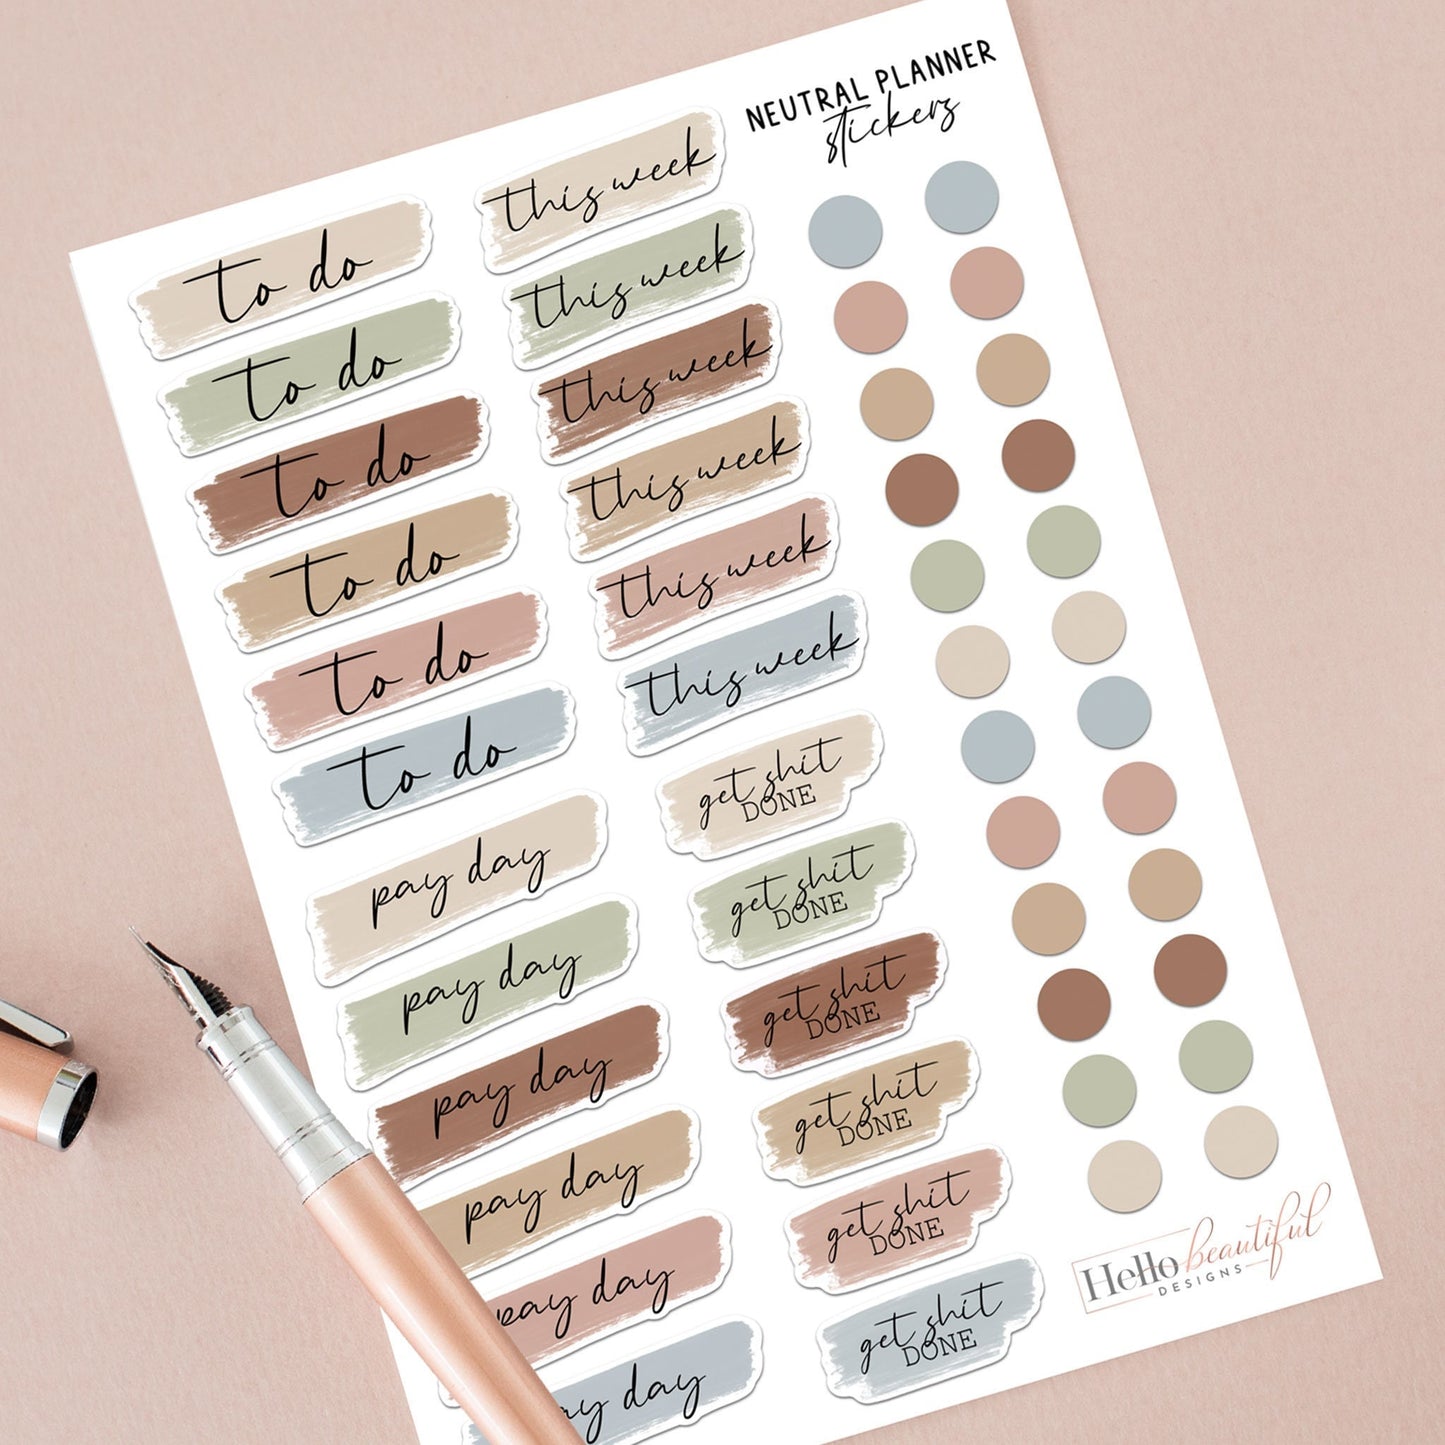 NEUTRAL PLANNER
stickers
to do
to do
to do
to do
to do
to do
this week
this week
this week
this week
this week
this week
pay day
pay day
pay day
pay day
pay day
day
get shit
DONE
get shit
DONE
get shit
DONE
get shit
DONE
get shit
DONE
get shit
DONE
Hello beautiful
DESIGNS